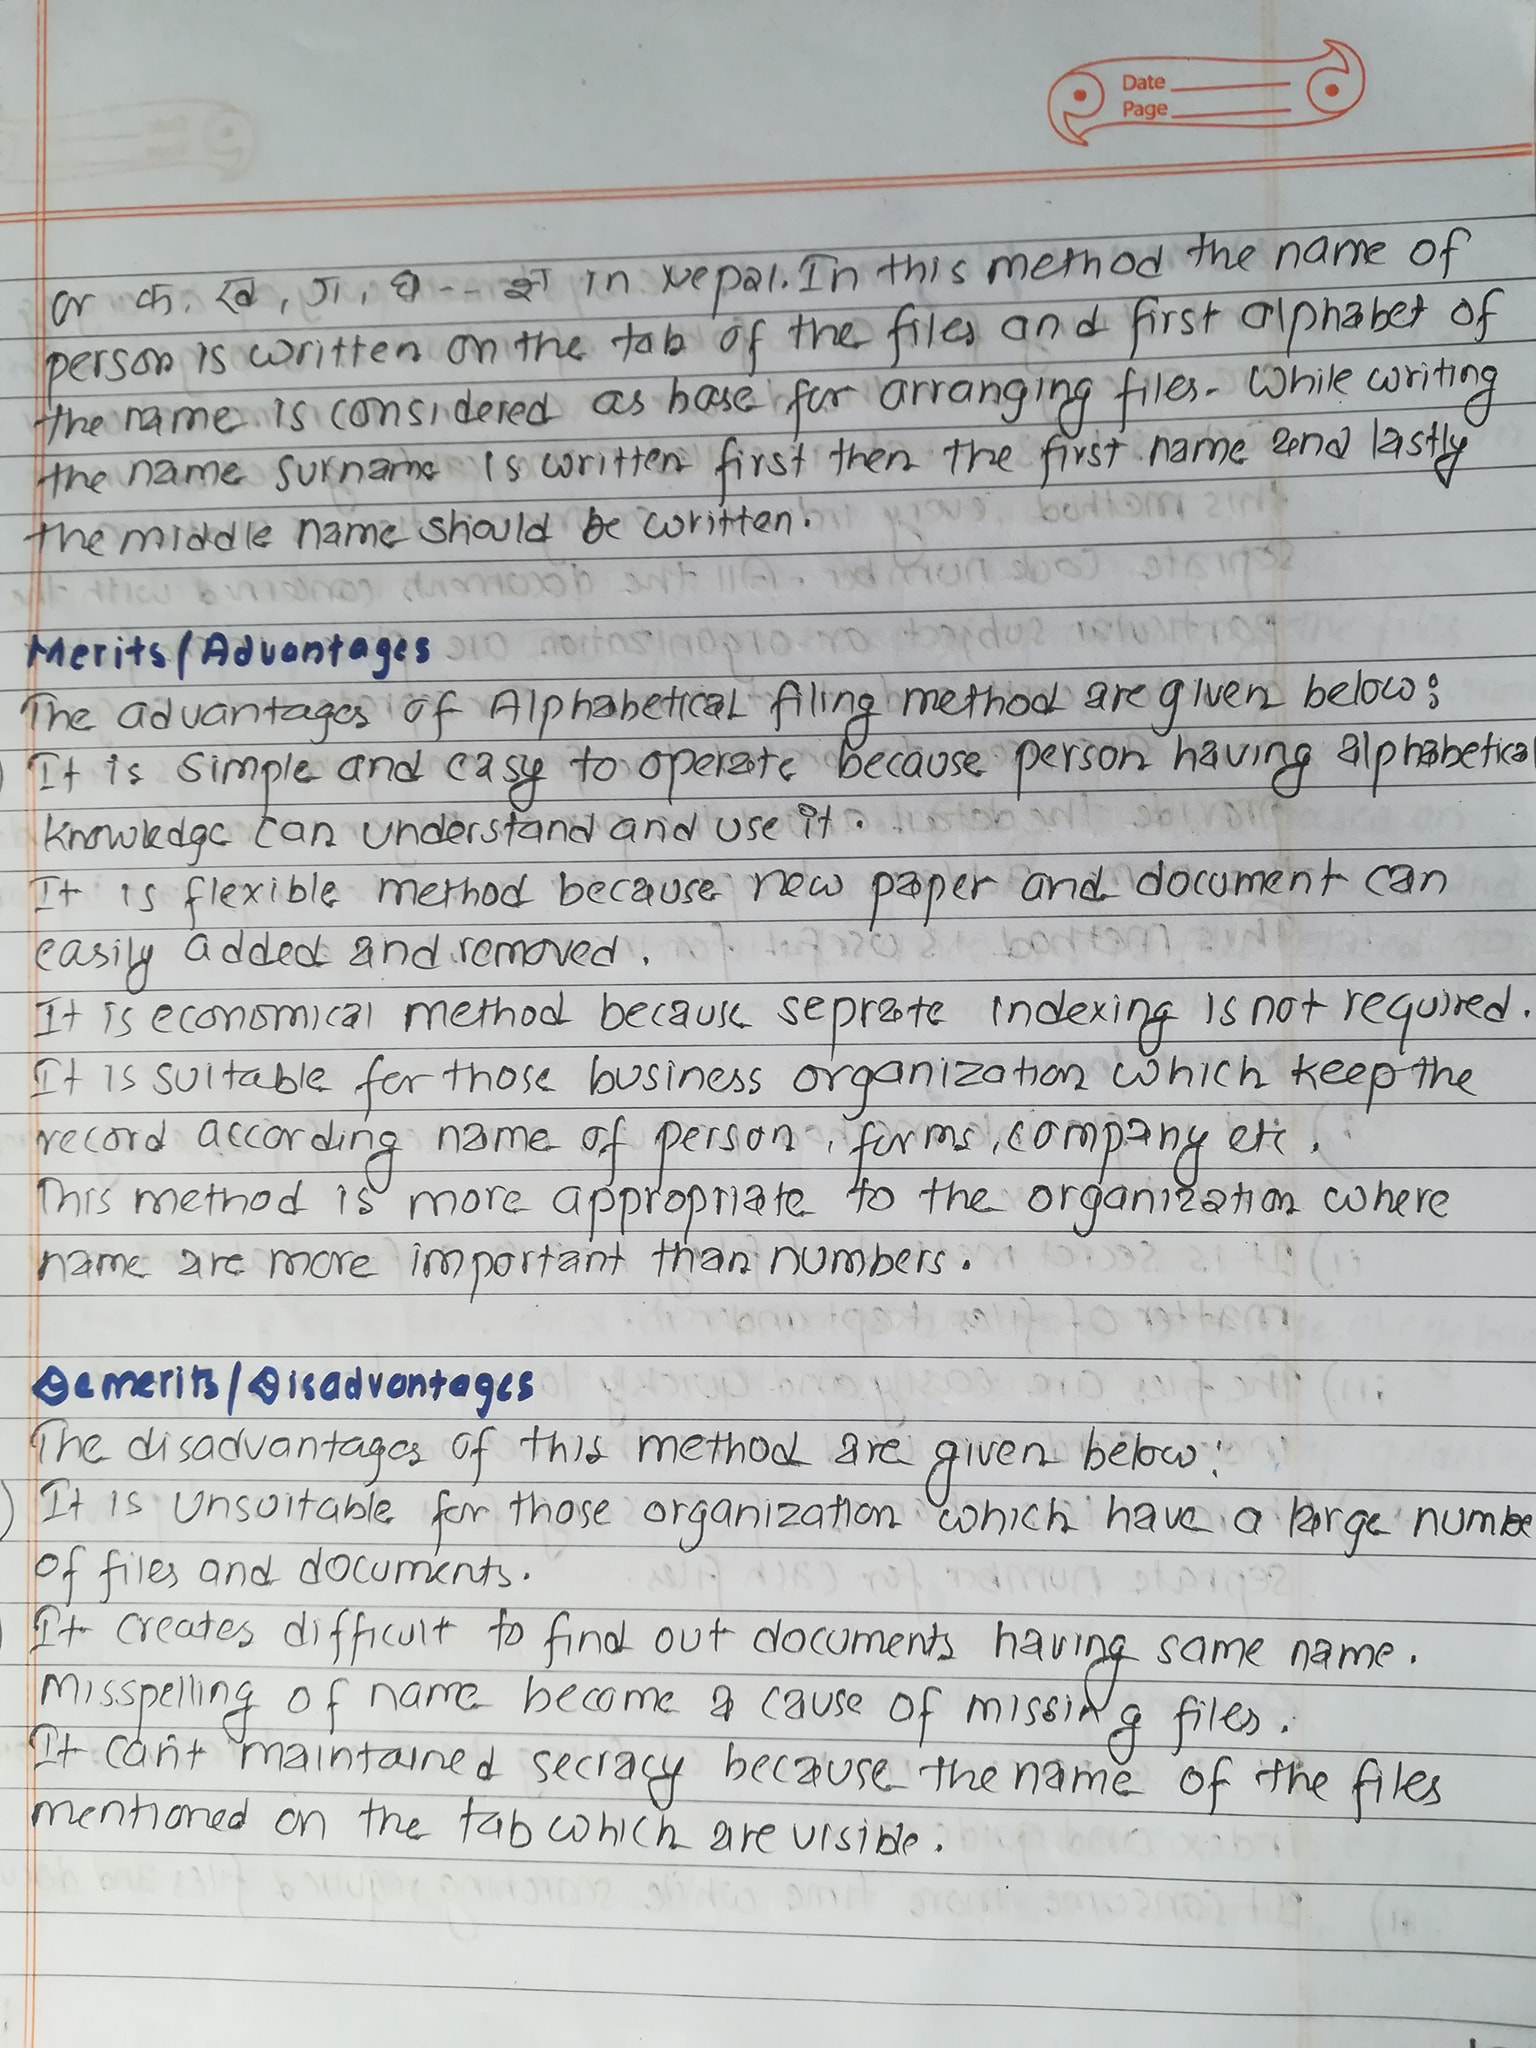 Date
Page
or क, ख, ग, घ -- ज्ञ in Nepal. In this method the name of
person is written on the tab of the files and first alphabet of
the name is considered as base for arranging files. While writing
the name surname is written first then the first name and lastly
the middle name should be written.
Merits/Advantages
The advantages of Alphabetical filing method are given below:
) It is simple and easy to operate because person having alphabetical
knowledge can understand and use it.
It is flexible method because new paper and document can
easily added and removed.
It is economical method because seprate indexing is not required.
It is suitable for those business organization which keep the
record according name of person, forms, company etc.
This method is more appropriate to the organization where
name are more important than numbers.
Demerits/Disadvantages
The disadvantages of this method are given below:
) It is unsuitable for those organization which have a large numbe
of files and documents.
) It creates difficult to find out documents having same name.
Misspelling of name become a cause of missing files.
It can't maintained secracy because the name of the files
mentioned on the tab which are visible.